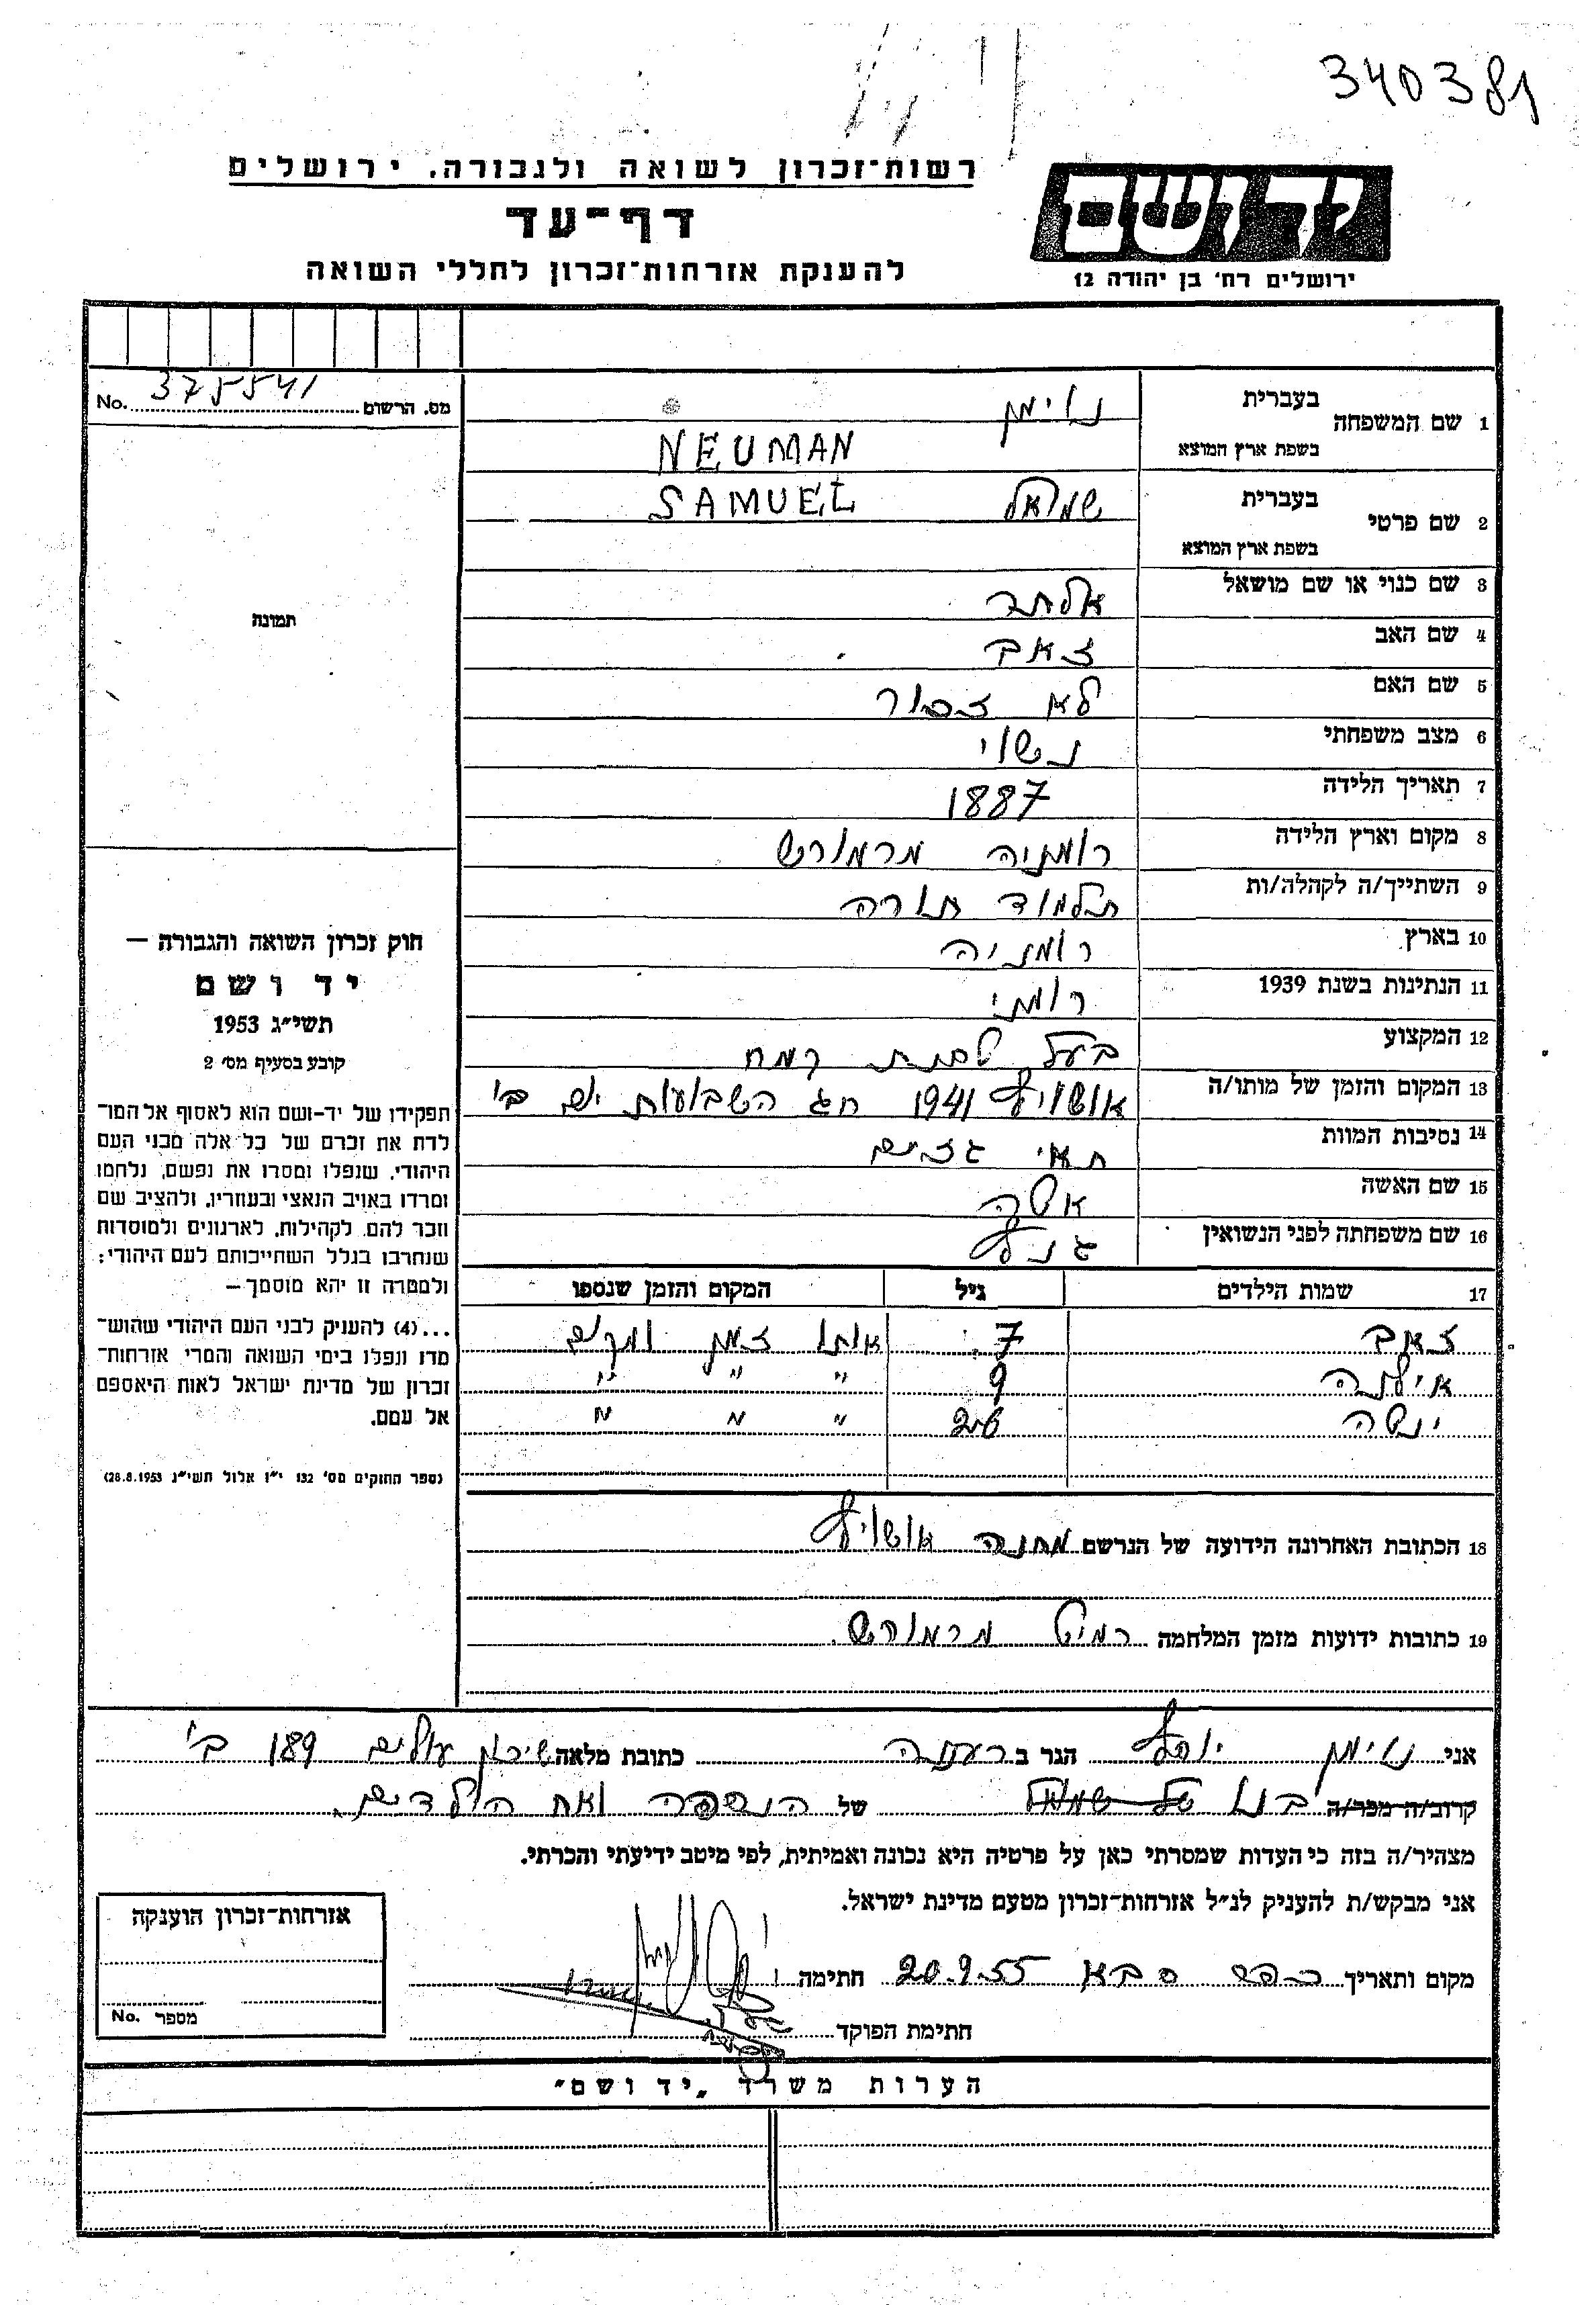 340381
רשות־זכרון לשואה ולגבורה, ירושלים
דף־עד
להענקת אזרחות־זכרון לחללי השואה
יד ושם
ירושלים רח' בן יהודה 12
מס. הרשום 375541 No.
1 שם המשפחה בעברית נוימן
בשפת ארץ המוצא NEUMAN
2 שם פרטי בעברית שמואל SAMUEL
בשפת ארץ המוצא
3 שם כנוי או שם מושאל
4 שם האב זאב
5 שם האם לא זכור
6 מצב משפחתי נשוי
7 תאריך הלידה 1887
8 מקום וארץ הלידה רומניה מרמורש
9 השתייך/ה לקהלה/ות תלמוד תורה
10 בארץ רומניה
11 הנתינות בשנת 1939 רומני
12 המקצוע בעל טחנת קמח
13 המקום והזמן של מותו/ה אושויץ 1941 חג השבועות יום ב'
14 נסיבות המוות תאי גזים
15 שם האשה
16 שם משפחתה לפני הנשואין
17 שמות הילדים גיל המקום והזמן שנספו
זאב 7 אותו זמן ומקום
אילנה 9 " " "
26 " " "
18 הכתובת האחרונה הידועה של הנרשם מחנה אושויץ
19 כתובות ידועות מזמן המלחמה מרמורש
תמונה
חוק זכרון השואה והגבורה —
יד ושם
תשי״ג 1953
קובע בסעיף מס' 2
תפקידו של יד-ושם הוא לאסוף אל המו־
לדת את זכרם של כל אלה מבני העם
היהודי, שנפלו ומסרו את נפשם, נלחמו
ומרדו באויב הנאצי ובעוזריו, ולהציב שם
וזכר להם, לקהילות, לארגונים ולמוסדות
שנחרבו בגלל השתייכותם לעם היהודי;
ולמטרה זו יהא מוסמך—
...(4) להענק לבני העם היהודי שהוש־
מדו ונפלו בימי השואה והמרי אזרחות־
זכרון של מדינת ישראל לאות היאספם
אל עמם.
(ספר החוקים מס' 132 י״ז אלול תשי״ג 28.8.1953)
אני נוימן יוסף הגר ב רעננה כתובת מלאה שיכון עולים 189 ב'
קרוב/ה מכר/ה בנו של שמואל של הנספה ואח הילדים.
מצהיר/ה בזה כי העדות שמסרתי כאן על פרטיה היא נכונה ואמיתית, לפי מיטב ידיעתי והכרתי.
אני מבקש/ת להעניק לנ״ל אזרחות־זכרון מטעם מדינת ישראל.
מקום ותאריך כפר סבא 20.9.55 חתימה
חתימת הפוקד
אזרחות־זכרון הוענקה
מספר No.
הערות משרד „יד ושם"